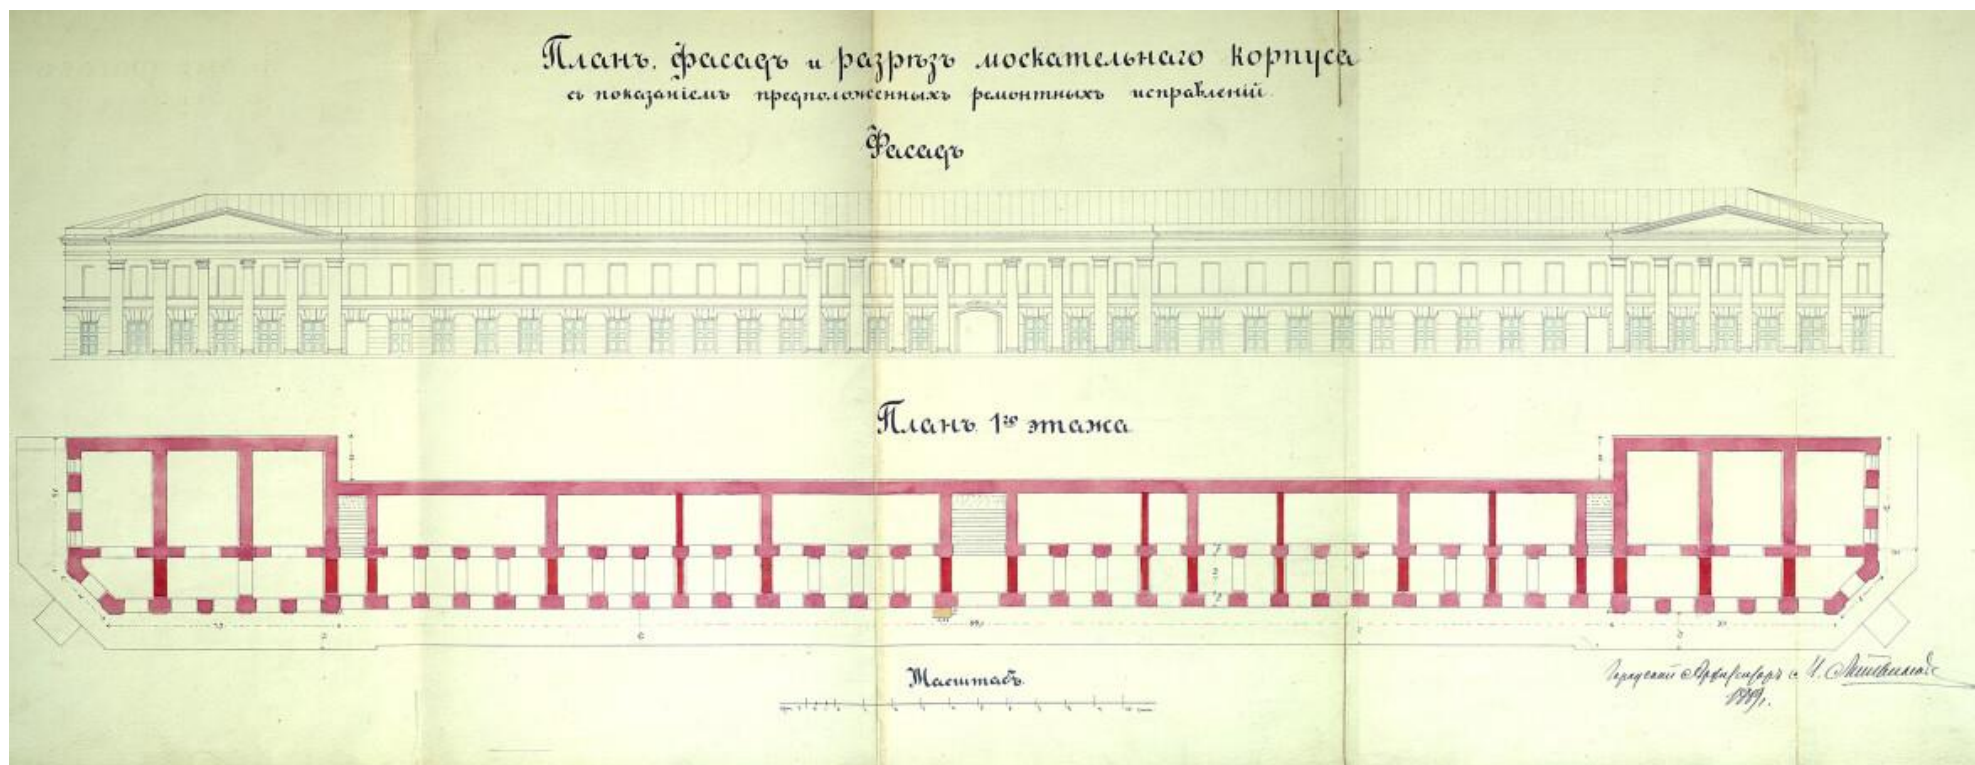 Планъ, фасадъ и разрѣзъ москательнаго корпуса
съ показаніемъ предположенныхъ ремонтныхъ исправленій.
Фасадъ
Планъ 1го этажа
Масштабъ
Городской Архитекторъ